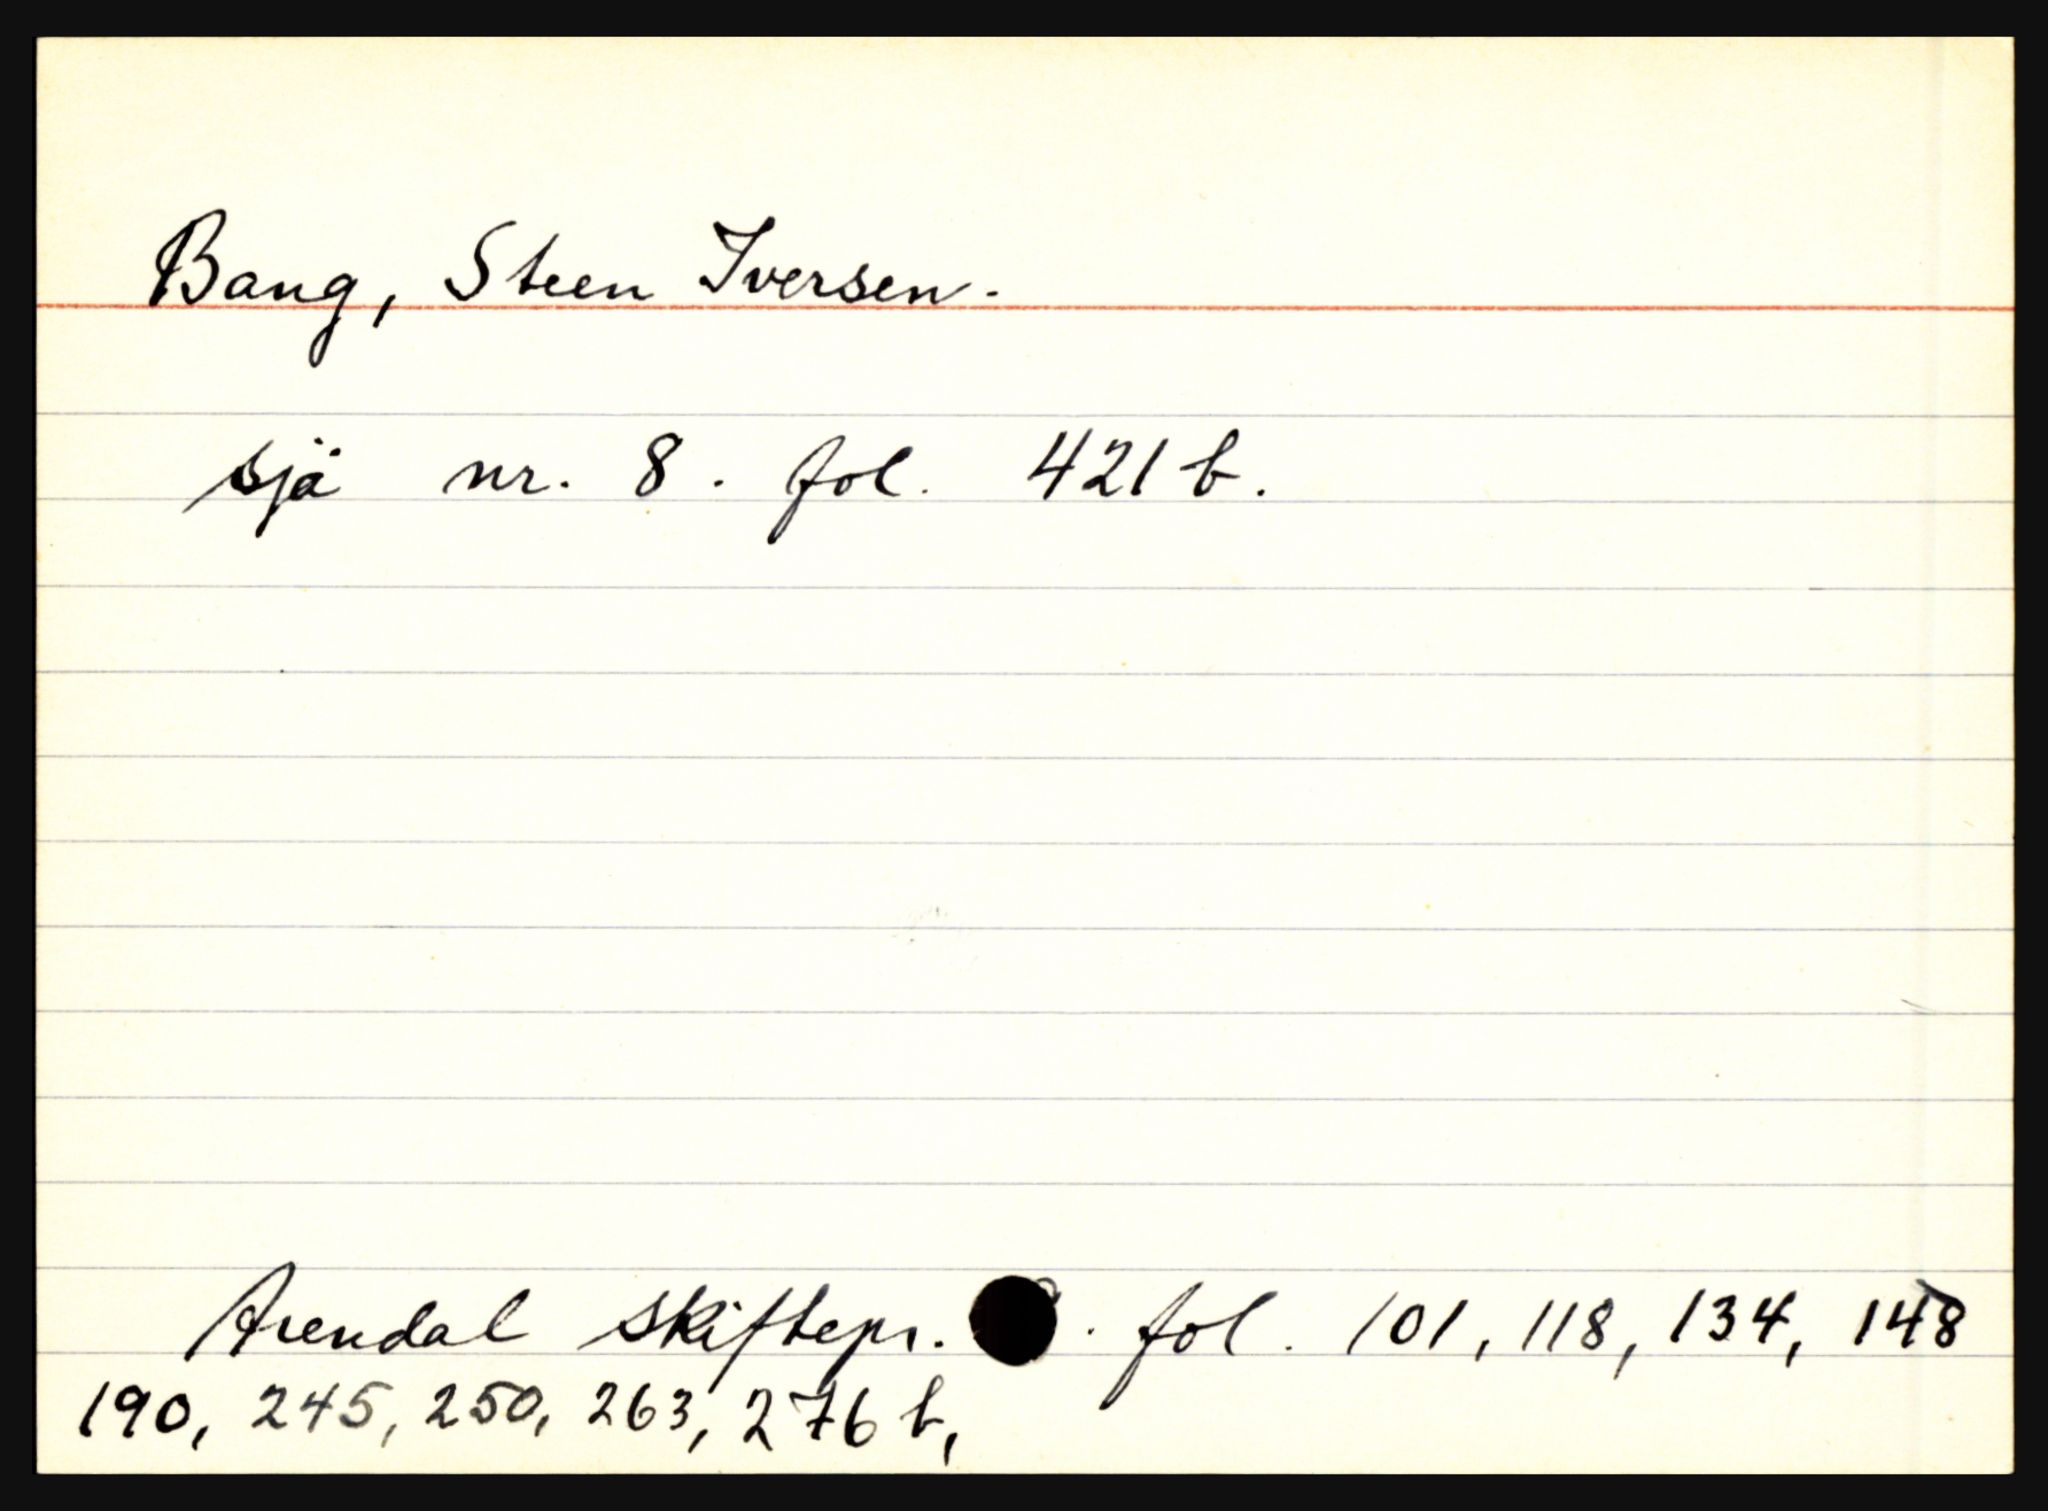 Bang, Steen Iversen.
sjä nr. 8. fol. 421 b.
Arendal skiftepr. . fol. 101, 118, 134, 148
190, 245, 250, 263, 276 b,